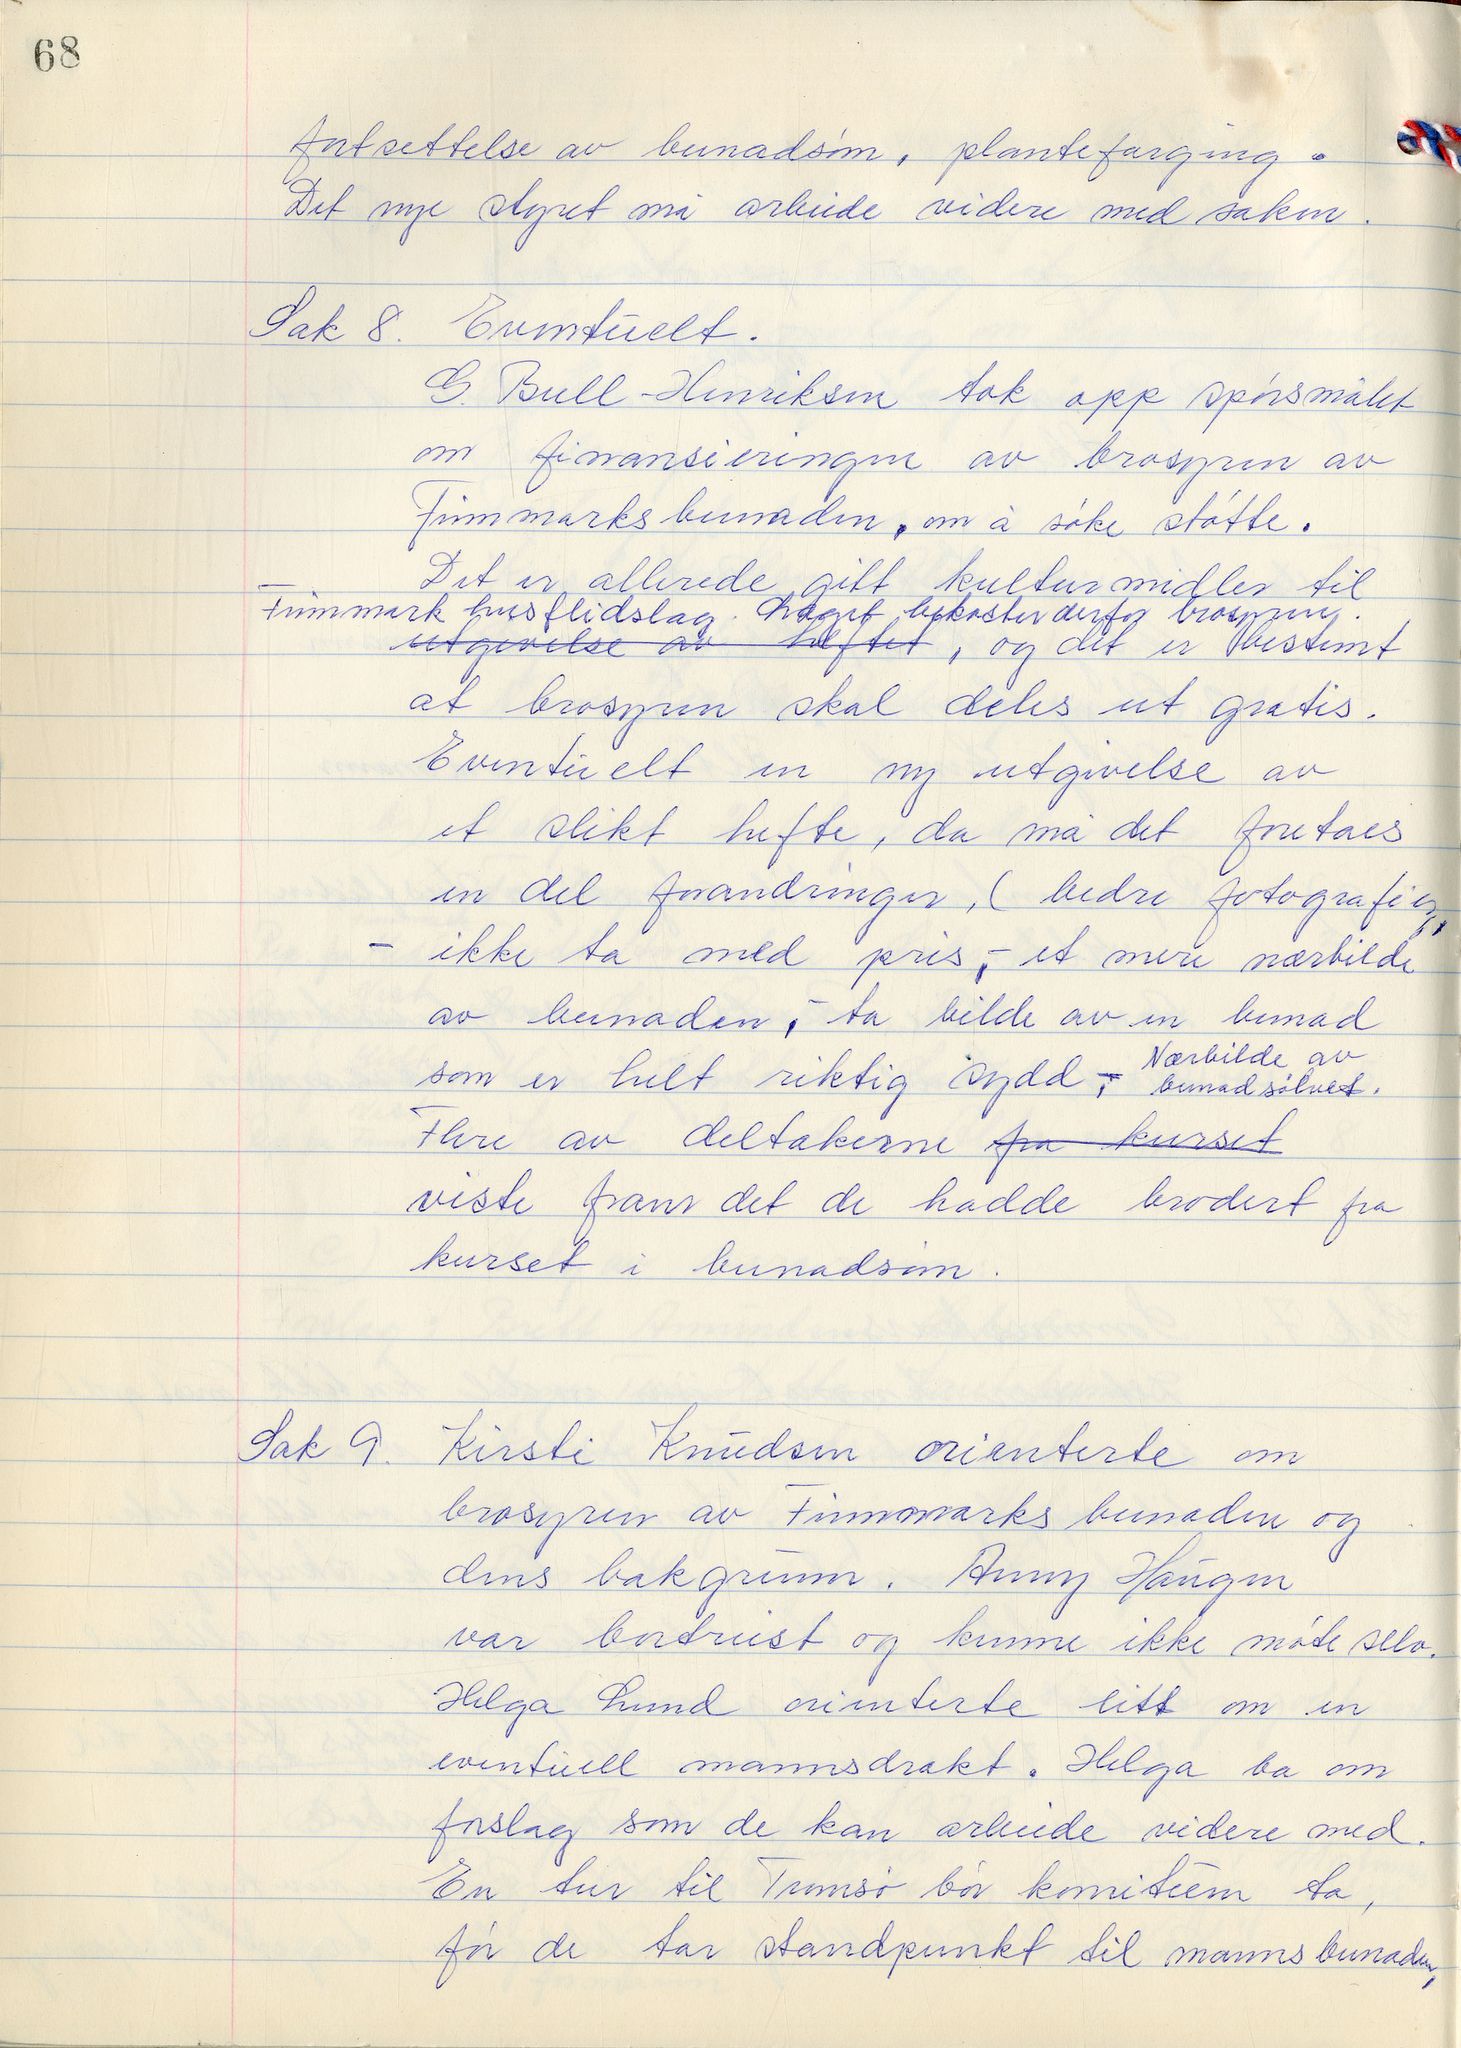 68
fortsettelse av bunadsøm, plantefarging.
Det nye styret må arbeide videre med saken.
Sak 8. Eventuelt.
G. Bull-Henriksen tok opp spørsmålet
om finansieringen av brosyren av
Finnmarksbunaden, om å søke støtte.
Det er allerede gitt kulturmidler til
Finnmark husflidslag. Laget bekoster derfor brosyren.
utgivelse av heftet, og det er bestemt
at brosyren skal deles ut gratis.
Eventuelt en ny utgivelse av
et slikt hefte, da må det foretaes
en del forandringer, ( bedre fotografier,
- ikke ta med pris, - et mere nærbilde
av bunaden, - ta bilde av en bunad
som er helt riktig sydd, - Nærbilde av
bunadsølvet.
Flere av deltakerne fra kurset
viste fram det de hadde brodert fra
kurset i bunadsøm.
Sak 9. Kirsti Knudsen orienterte om
brosyren av Finnmarksbunaden og
dens bakgrunn. Anny Haugen
var bortreist og kunne ikke møte selv.
Helga Lund orienterte litt om en
eventuell mannsdrakt. Helga ba om
forslag som de kan arbeide videre med.
En tur til Tromsø bør komitéen ta,
før de tar standpunkt til mannsbunaden,